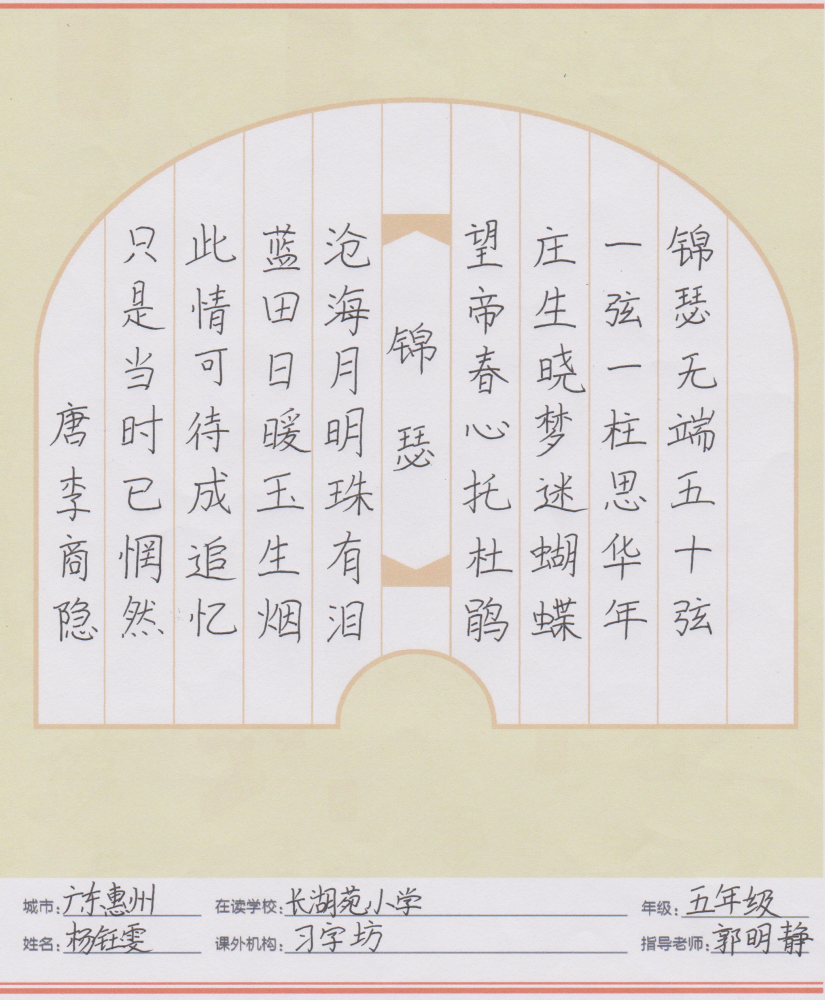 锦瑟无端五十弦
一弦一柱思华年
庄生晓梦迷蝴蝶
望帝春心托杜鹃
锦瑟
沧海月明珠有泪
蓝田日暖玉生烟
此情可待成追忆
只是当时已惘然
唐李商隐
城市：广东惠州 在读学校：长湖苑小学 年级：五年级
姓名：杨钰雯 课外机构：习字坊 指导老师：郭明静